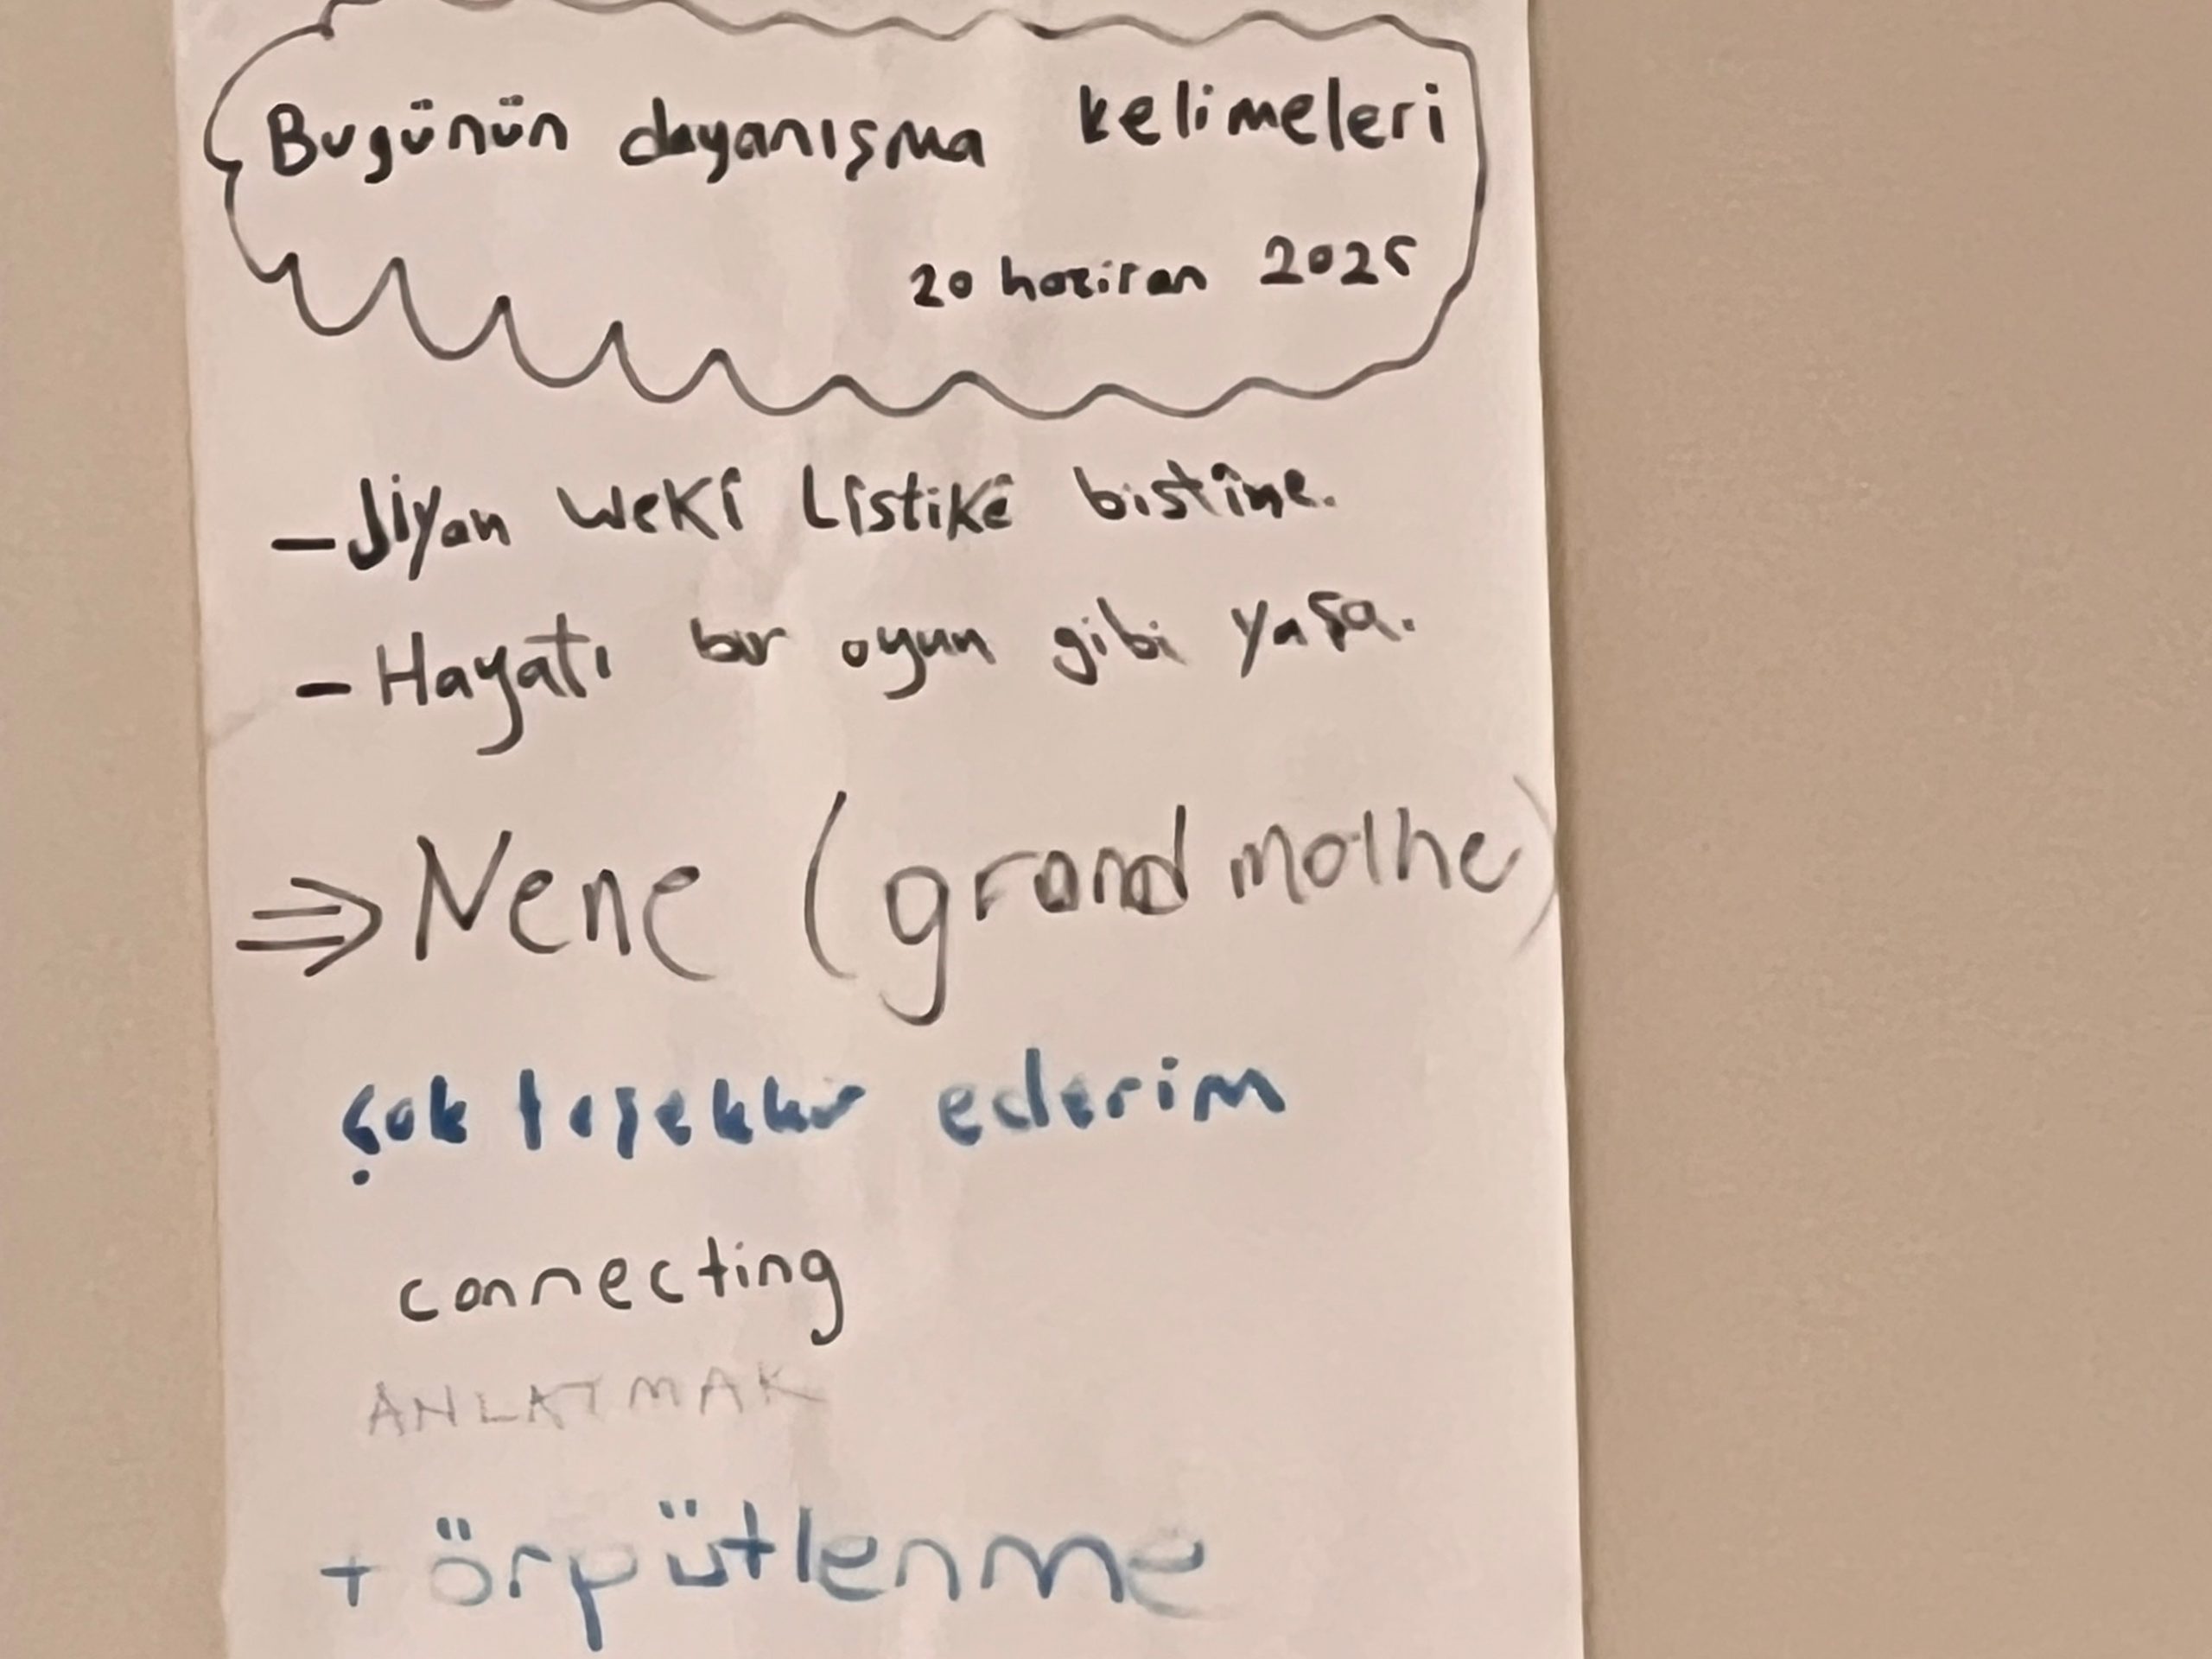 Bugünün dayanışma kelimeleri
20 haziran 2025
- Jiyan wekî lîstikê bistîne.
- Hayatı bir oyun gibi yaşa.
⇒ Nene (grand mothe)
çok teşekkür ederim
connecting
ANLATMAK
+ örpütlenme